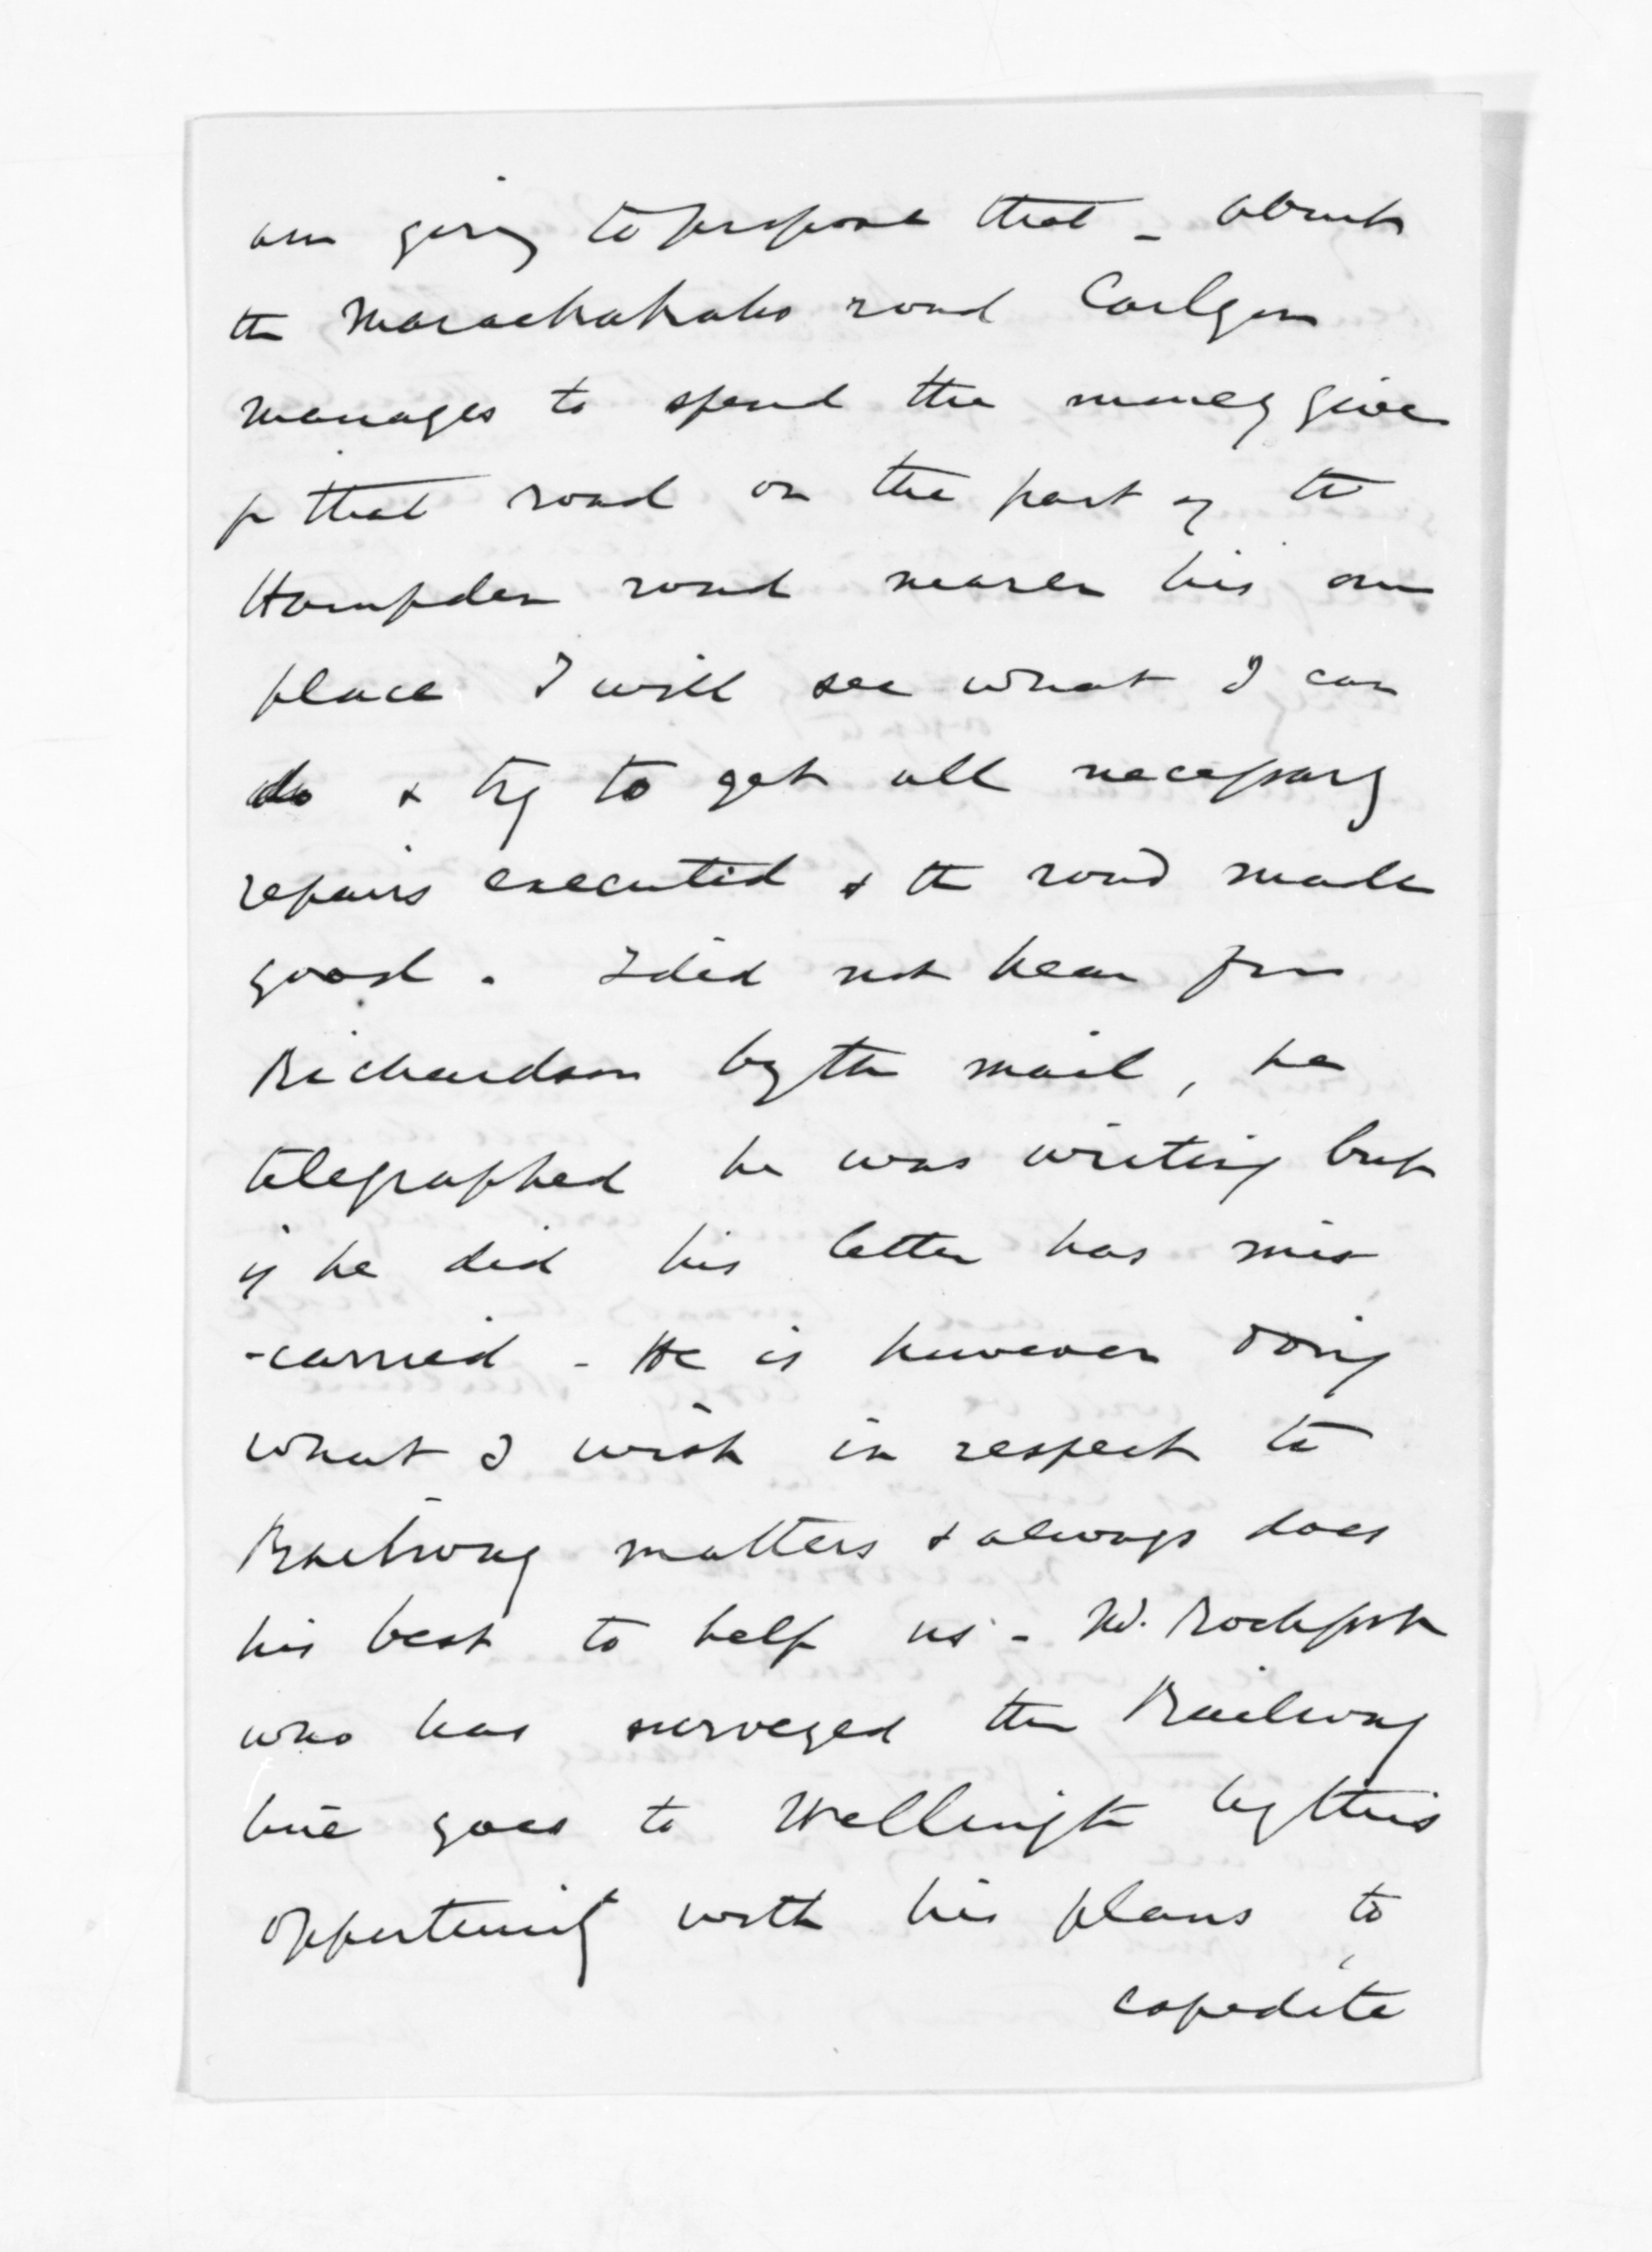 am going to propose that - about
the Maraekakaho road Carlyon
manages to spend the money given
for that road on the part of the
Hampden road nearer his own
place I will see what I can
do & try to get all necessary
repairs executed & the road made
good. I did not hear from
Richardson by the mail, he
telegraphed he was writing but
if he did his letter has mis
-carried - He is however doing
what I wish in respect to
Railway matters & always does
his best to help us - Mr. Rochfort
who has surveyed the Railway
line goes to Wellington by this
opportunity with his plans to
expedite